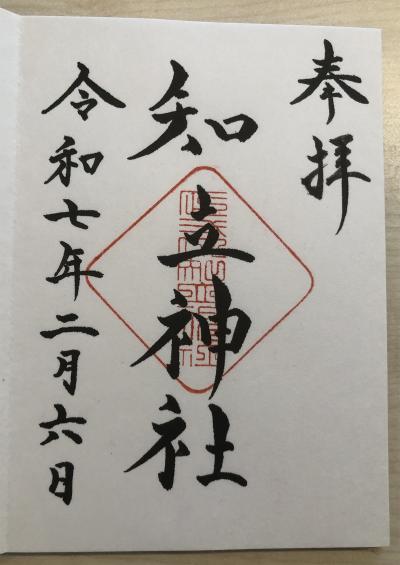 奉拝
知立神社
令和七年二月六日